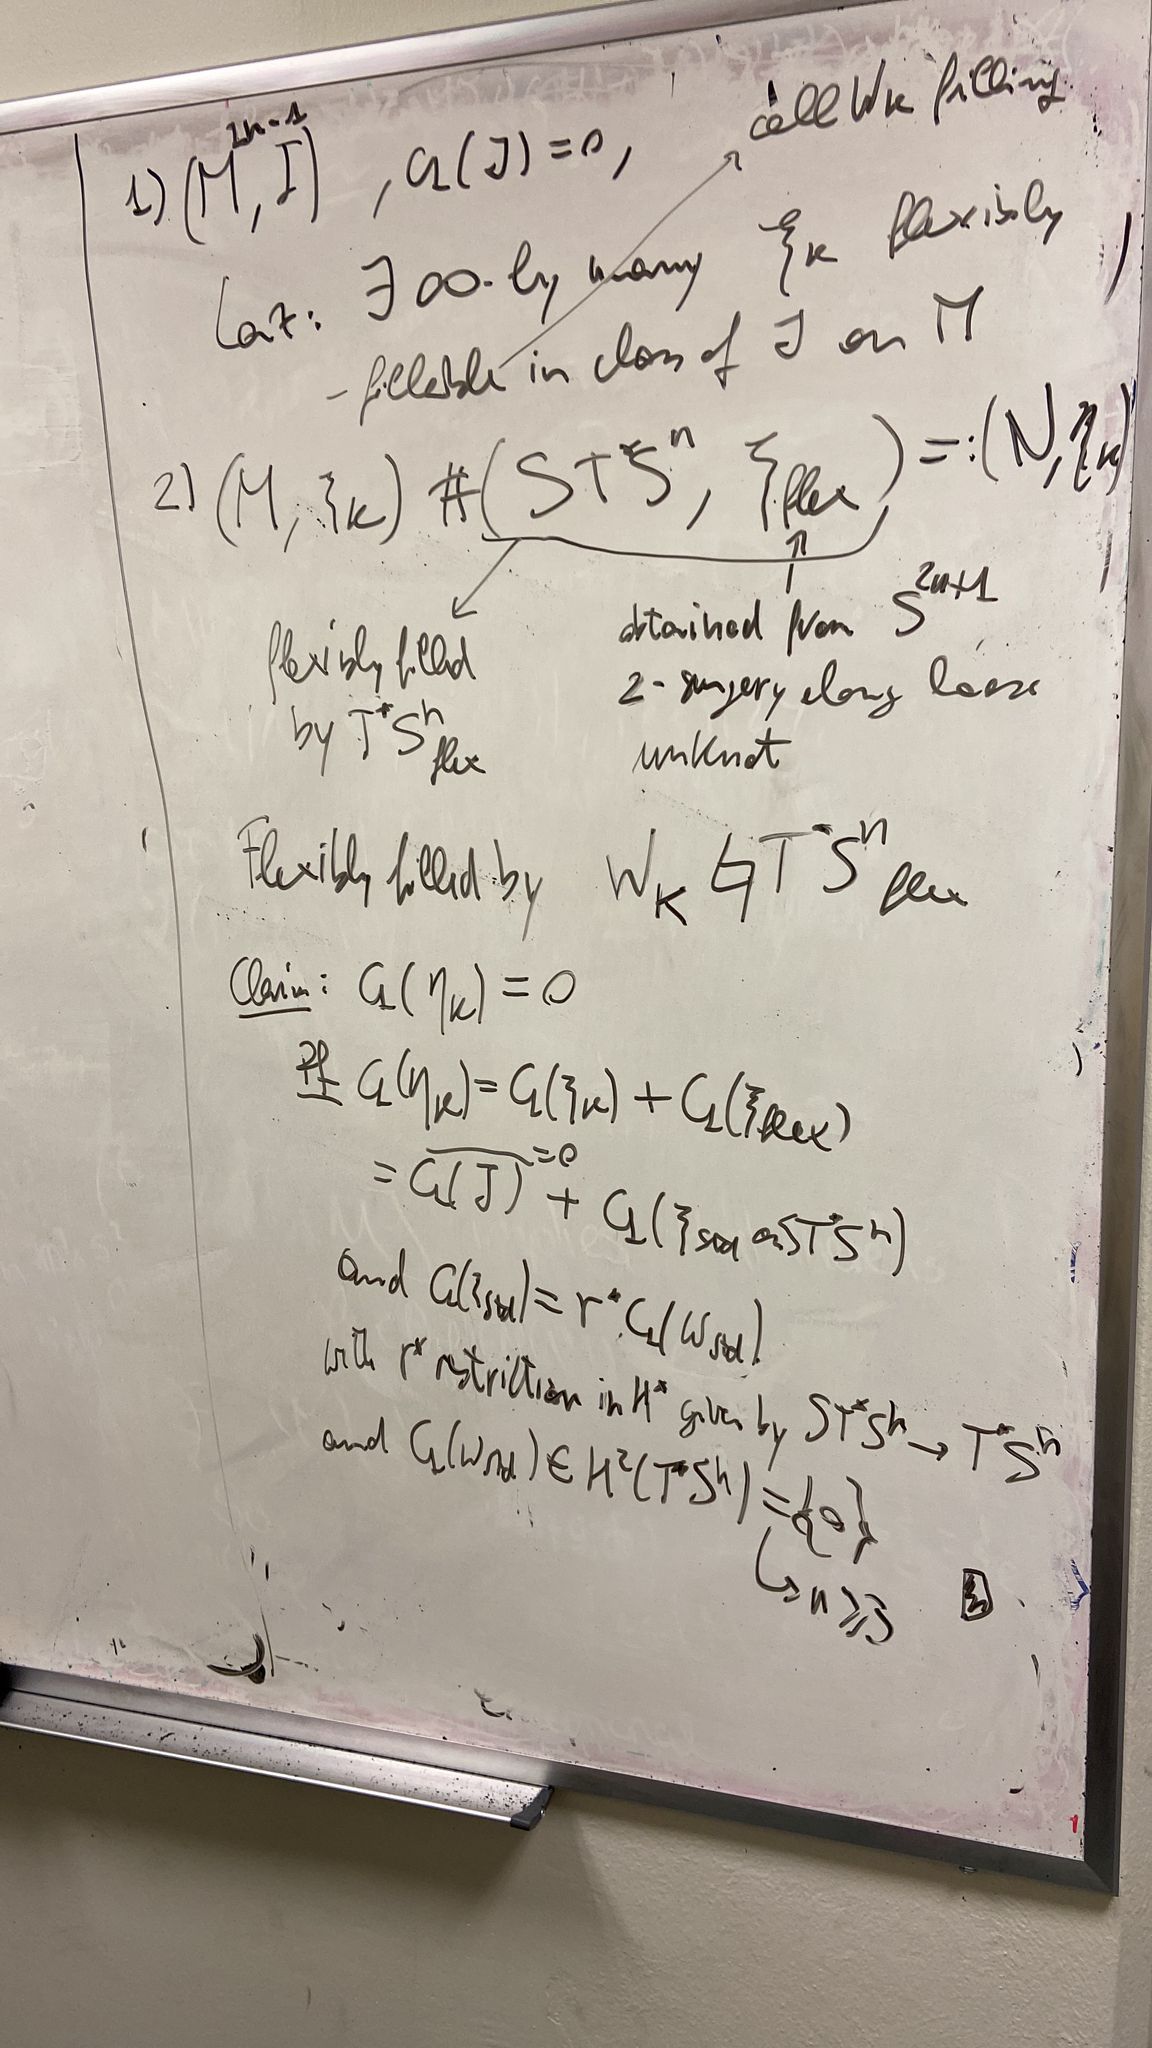 call W_K filling
1) (M^{2n-1}, J) , c_1(J) = 0,
Laz: ∃ ∞-ly many ξ_K flexibly
-fillable in class of J on M
2) (M, ξ_K) # (ST*S^n, ξ_flex) =: (N, η_K)
flexibly filled
by T*S^n_flex
obtained from S^{2n+1}
2-surgery along loose
unknot
Flexibly filled by W_K ♮ T*S^n_flex
Claim: c_1(η_K) = 0
Pf c_1(η_K) = c_1(ξ_K) + c_1(ξ_flex)
= c_1(J) =0 + c_1(ξ_std on ST*S^n)
and c_1(ξ_std) = r* c_1(ω_std)
with r* restriction in H* given by ST*S^n → T*S^n
and c_1(ω_std) ∈ H^2(T*S^n) = {0}
↳ n ≥ 3